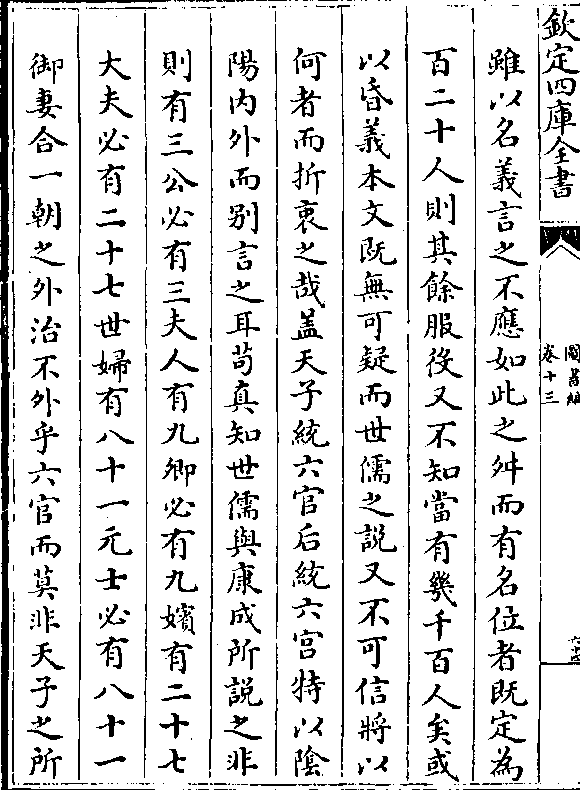 欽定四庫全書
卷十三
雖以名義言之不應如此之舛而有名位者既定為
百二十人則其餘服役又不知當有幾千百人矣或
以昏義本文既無可疑而世儒之說又不可信將以
何者而折衷之哉盖天子統六官后統六宫特以陰
陽内外而别言之耳苟真知世儒與康成所說之非
則有三公必有三夫人有九卿必有九嬪有二十七
大夫必有二十七世婦有八十一元士必有八十一
御妻合一朝之外治不外乎六官而莫非天子之所